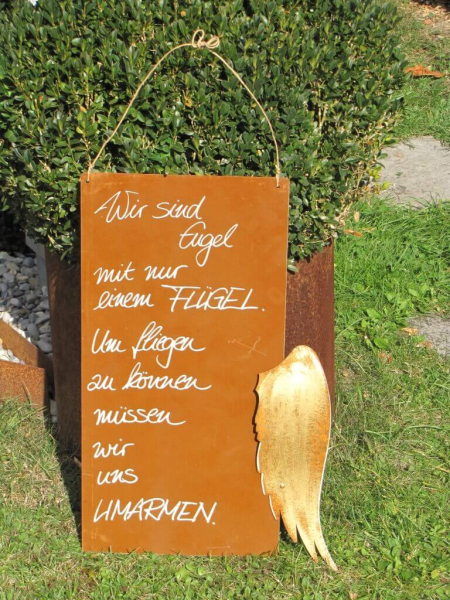 Wir sind
Engel
mit nur
einem FLÜGEL.
Um fliegen
zu können
müssen
wir
uns
UMARMEN.